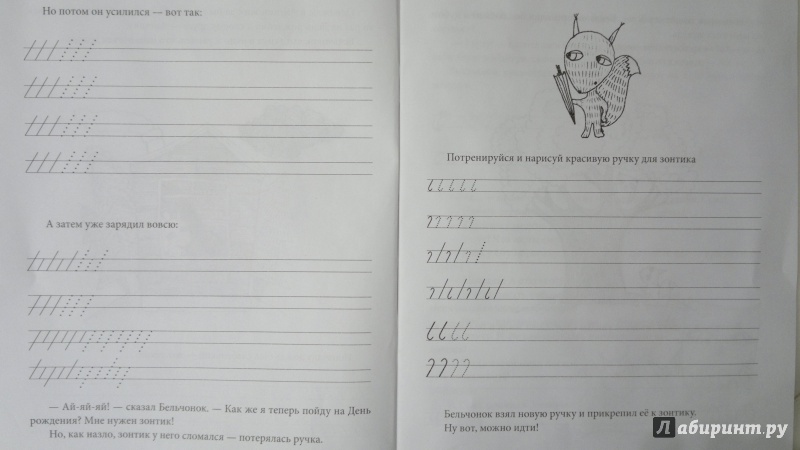 Но потом он усилился — вот так:
А затем уже зарядил вовсю:
— Ай-яй-яй! — сказал Бельчонок. — Как же я теперь пойду на День
рождения? Мне нужен зонтик!
Но, как назло, зонтик у него сломался — потерялась ручка.
Потренируйся и нарисуй красивую ручку для зонтика
Бельчонок взял новую ручку и прикрепил её к зонтику.
Ну вот, можно идти!
Лабиринт.ру